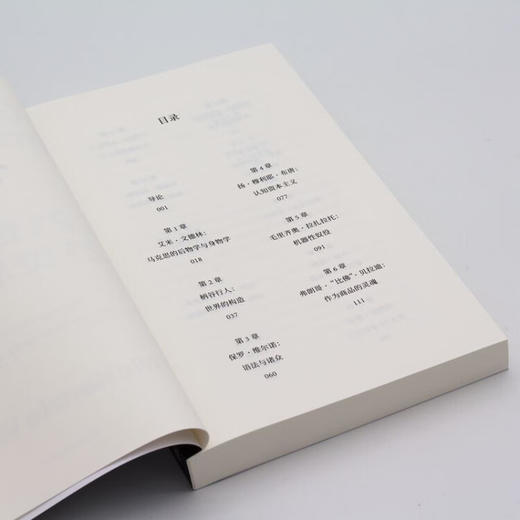 目录
导论
001
第 1 章
艾米·文德林:
马克思的后物学与身物学
018
第 2 章
柄谷行人:
世界的构造
037
第 3 章
保罗·维尔诺:
语法与诸众
060
第 4 章
扬·穆利耶·布唐:
认知资本主义
077
第 5 章
毛里齐奥·拉扎拉托:
机器性奴役
091
第 6 章
弗朗哥·“比佛”·贝拉迪:
作为商品的灵魂
111